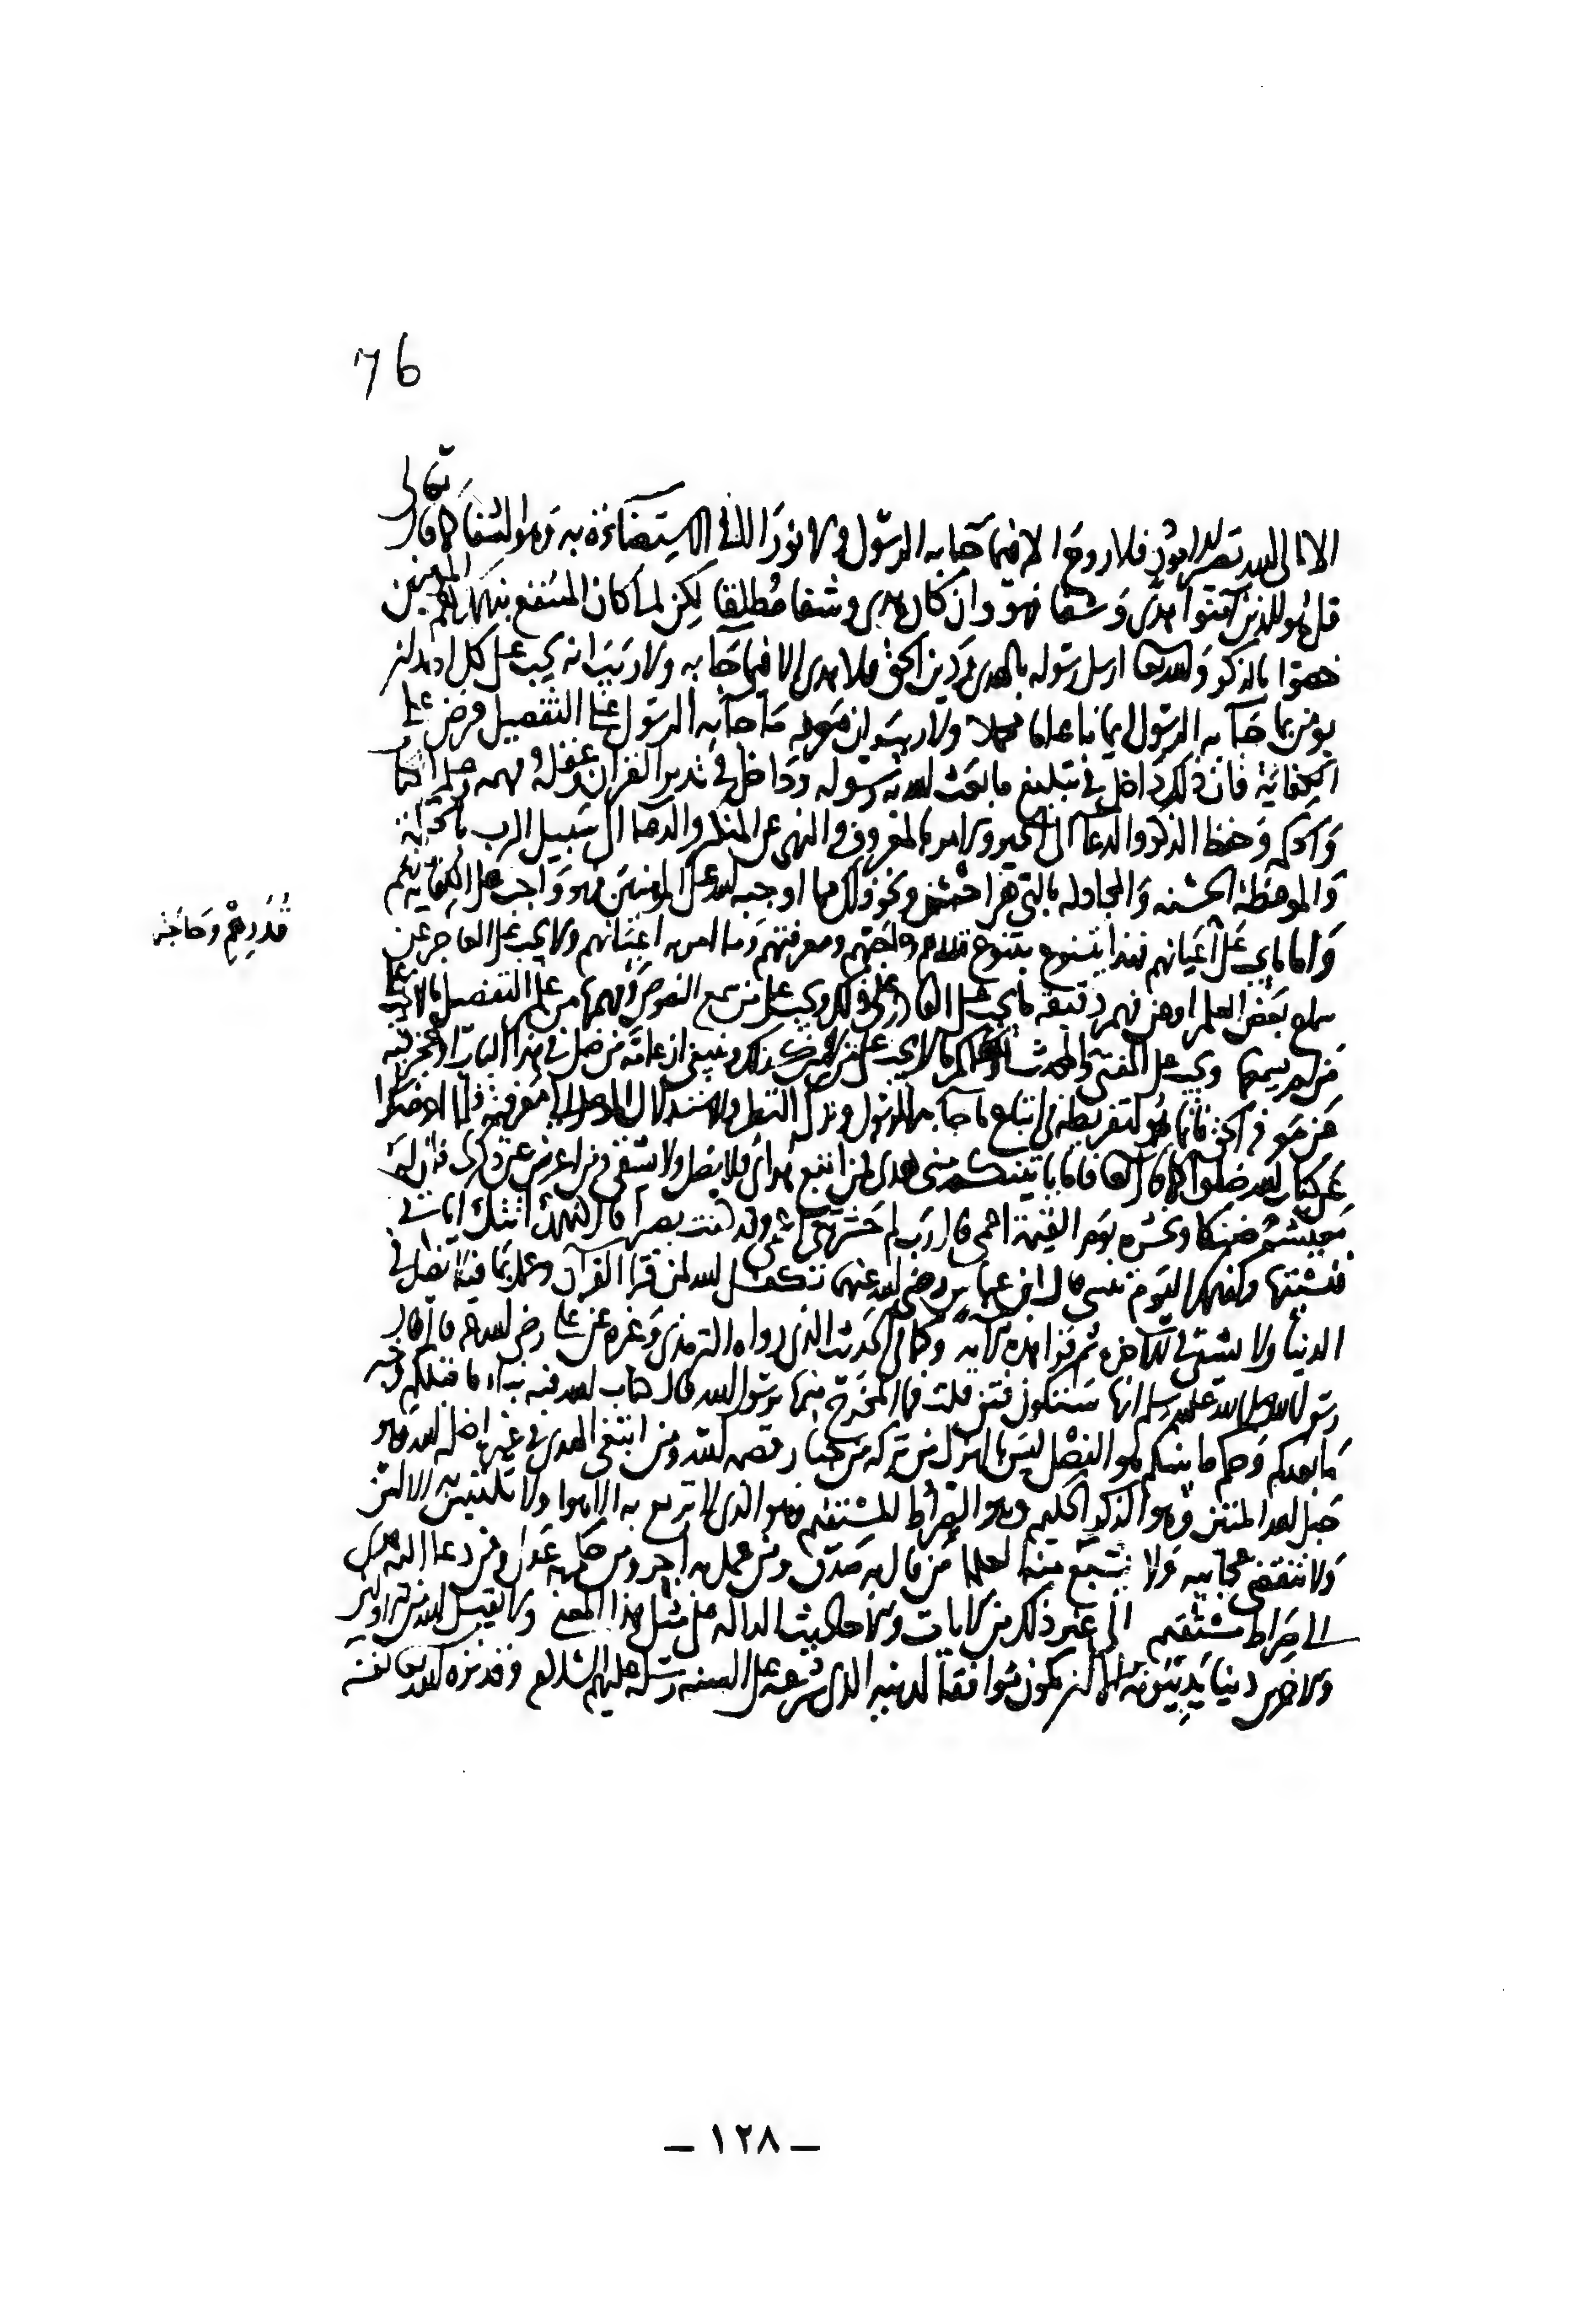 76
تعالى
الا الى الله تصير الامور فلا روح الا فيما جا به الرسول ولا نور الا في الاستضاءة به وهو الشفا كما قال
قل هو للذين آمنوا هدى وشفا فهو وان كان هدى وشفا مطلقا لكن لما كان المنتفع بذلك هم المومنين
خصوا بالذكر والله تعا ارسل رسوله بالهدى ودين الحق فلا هدى الا فيما جا به ولا ريب انه يجب على كل احد ان
يومن بما جآ به الرسول ايمانا عاما مجملا ولا ريب ان معرفه ما جا به الرسول على التفصيل فرض على
الكفاية فان ذلك داخل في تبليغ ما بعث الله به رسوله وداخل في تدبر القرآن وعقله وفهمه وعلم الكتاب
والحكمه وحفظ الذكر والدعا الى الخير والامر بالمعروف والنهي عن المنكر والدعا الى سبيل الرب بالحكمة
والموعظة الحسنه والمجادله بالتي هي احسن ونحو ذلك مما اوجبه الله على المومنين فهو واجب على الكفاية منهم
واما ما يجب على اعيانهم فهذا يتنوع بتنوع قدرهم وحاجتهم ومعرفتهم وما امر به اعيانهم ولا يجب على العاجز عن
قدرهم وحاجته
سماع بعض العلم او عن فهم دقيقه ما يجب على القادر على ذلك ويجب على من سمع النصوص وفهمها من علم التفصيل ما لا يجب على
من لم يسمعها ويجب على المفتي والمحدث والحاكم ما لا يجب على من ليس كذلك وينبغي ان عامة من ضل في هذا الباب او عجز فيه
عن معرفه الحق فانما هو لتفريطه في اتباع ما جا به الرسول وترك النظر والاستدلال الموصل الى معرفته فلما اعرضوا
عن كتاب الله ضلوا كما قال تعا فاما ياتينكم مني هدى فمن اتبع هداي فلا يضل ولا يشقى ومن اعرض عن ذكري فان له
معيشة ضنكا ونحشره يوم القيمة اعمى قال رب لم حشرتني اعمى وقد كنت بصيرا قال كذلك اتتك اياتنا
فنسيتها وكذلك اليوم تنسى قال ابن عباس رضي الله عنهما تكفل الله لمن قرا القرآن وعمل بما فيه ان لا يضل في
الدنيا ولا يشقى في الاخرة ثم قرا هذه الاية وكما في الحديث الذي رواه الترمذي وغيره عن علي رضي الله عنه قال قال
رسول الله صلى الله عليه وسلم انها ستكون فتن قلت فما المخرج منها يرسول الله قال كتاب الله فيه نبا ما قبلكم وخبر
ما بعدكم وحكم ما بينكم هو الفصل ليس بالهزل من تركه من جبار قصمه الله ومن ابتغى الهدى في غيره اضله الله وهو
حبل الله المتين وهو الذكر الحكيم وهو الصراط المستقيم وهو الذي لا تزيغ به الاهوا ولا تلتبس به الالسن
ولا تنقضي عجائبه ولا يشبع منه العلما من قال به صدق ومن عمل به اجر ومن حكم به عدل ومن دعا اليه هدي
الى صراط مستقيم الى غير ذلك من الايات والاحاديث الداله على مثل هذا المعنى ولا يقبل الله من الاولين
والاخرين دينا يدينونه الا ان يكون موافقا لدينه الذي شرعه على السنة رسله عليهم السلام وقد نزه الله تعا نفسه
– ١٢٨ –